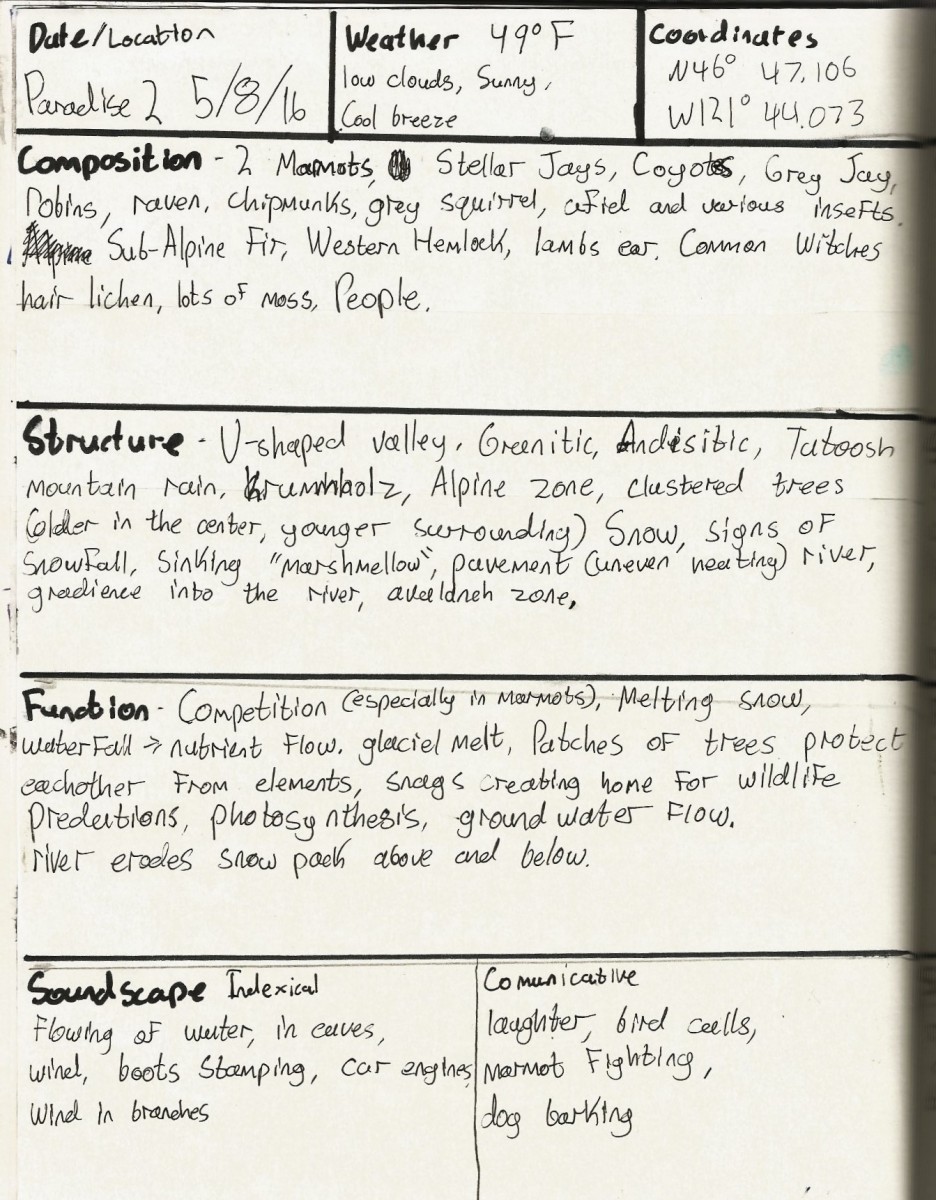 Date/Location
Paradise 2 5/8/16
Weather 49°F
low clouds, Sunny,
Cool breeze
Coordinates
N46° 47.106
W121° 44.073
Composition - 2 Marmots, Stellar Jays, Coyotes, Grey Jay,
Robins, raven, chipmunks, grey squirrel, and various insefts.
Sub-Alpine Fir, Western Hemlock, lambs ear, Common Witches
hair lichen, lots of moss, People.
Structure - U-shaped valley, Greenitic, Andisitic, Tatoosh
mountain rain, Krummholz, Alpine zone, clustered trees
(older in the center, younger surrounding) Snow, signs of
snowfall, sinking "marshmellow", pavement (uneven heating) river,
gradience into the river, avaldnch zone,
Function - Competition (especially in marmots), Melting snow,
waterfall → nutrient flow. glaciel melt, Patches of trees protect
eachother from elements, snags creating home for wildlife
Predections, photosynthesis, ground water flow.
river erodes snow pack above and below.
Soundscape Indexical
flowing of water, in eaves,
wind, boots stomping, car engines,
wind in branches
Comunicative
laughter, bird calls,
marmot fighting,
dog barking